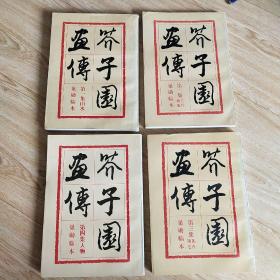 芥子園
畫傳
第一集山水
巢勛臨本
芥子園
畫傳
第二集
巢勛臨本
芥子園
畫傳
第四集人物
巢勛臨本
芥子園
畫傳
第三集
巢勛臨本